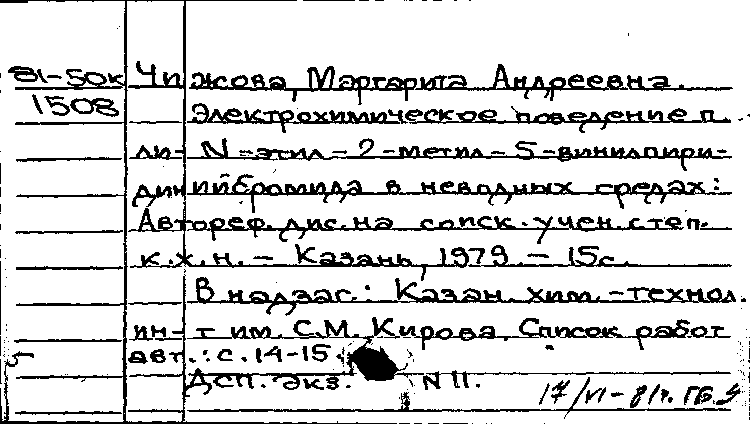 81-50к Чижова, Маргарита Андреевна.
1508 Электрохимическое поведение п.
ли-N-этил-2-метил-5-винилпири-
динийбромида в неводных средах:
Автореф. дис. на соиск. учен. степ.
к.х.н. - Казань, 1979. - 15с.
В надзаг.: Казан. хим.-технол.
ин-т им. С.М. Кирова. Список работ
авт.: с. 14-15
Дсп. Экз. N 11.
17/VI-81г.